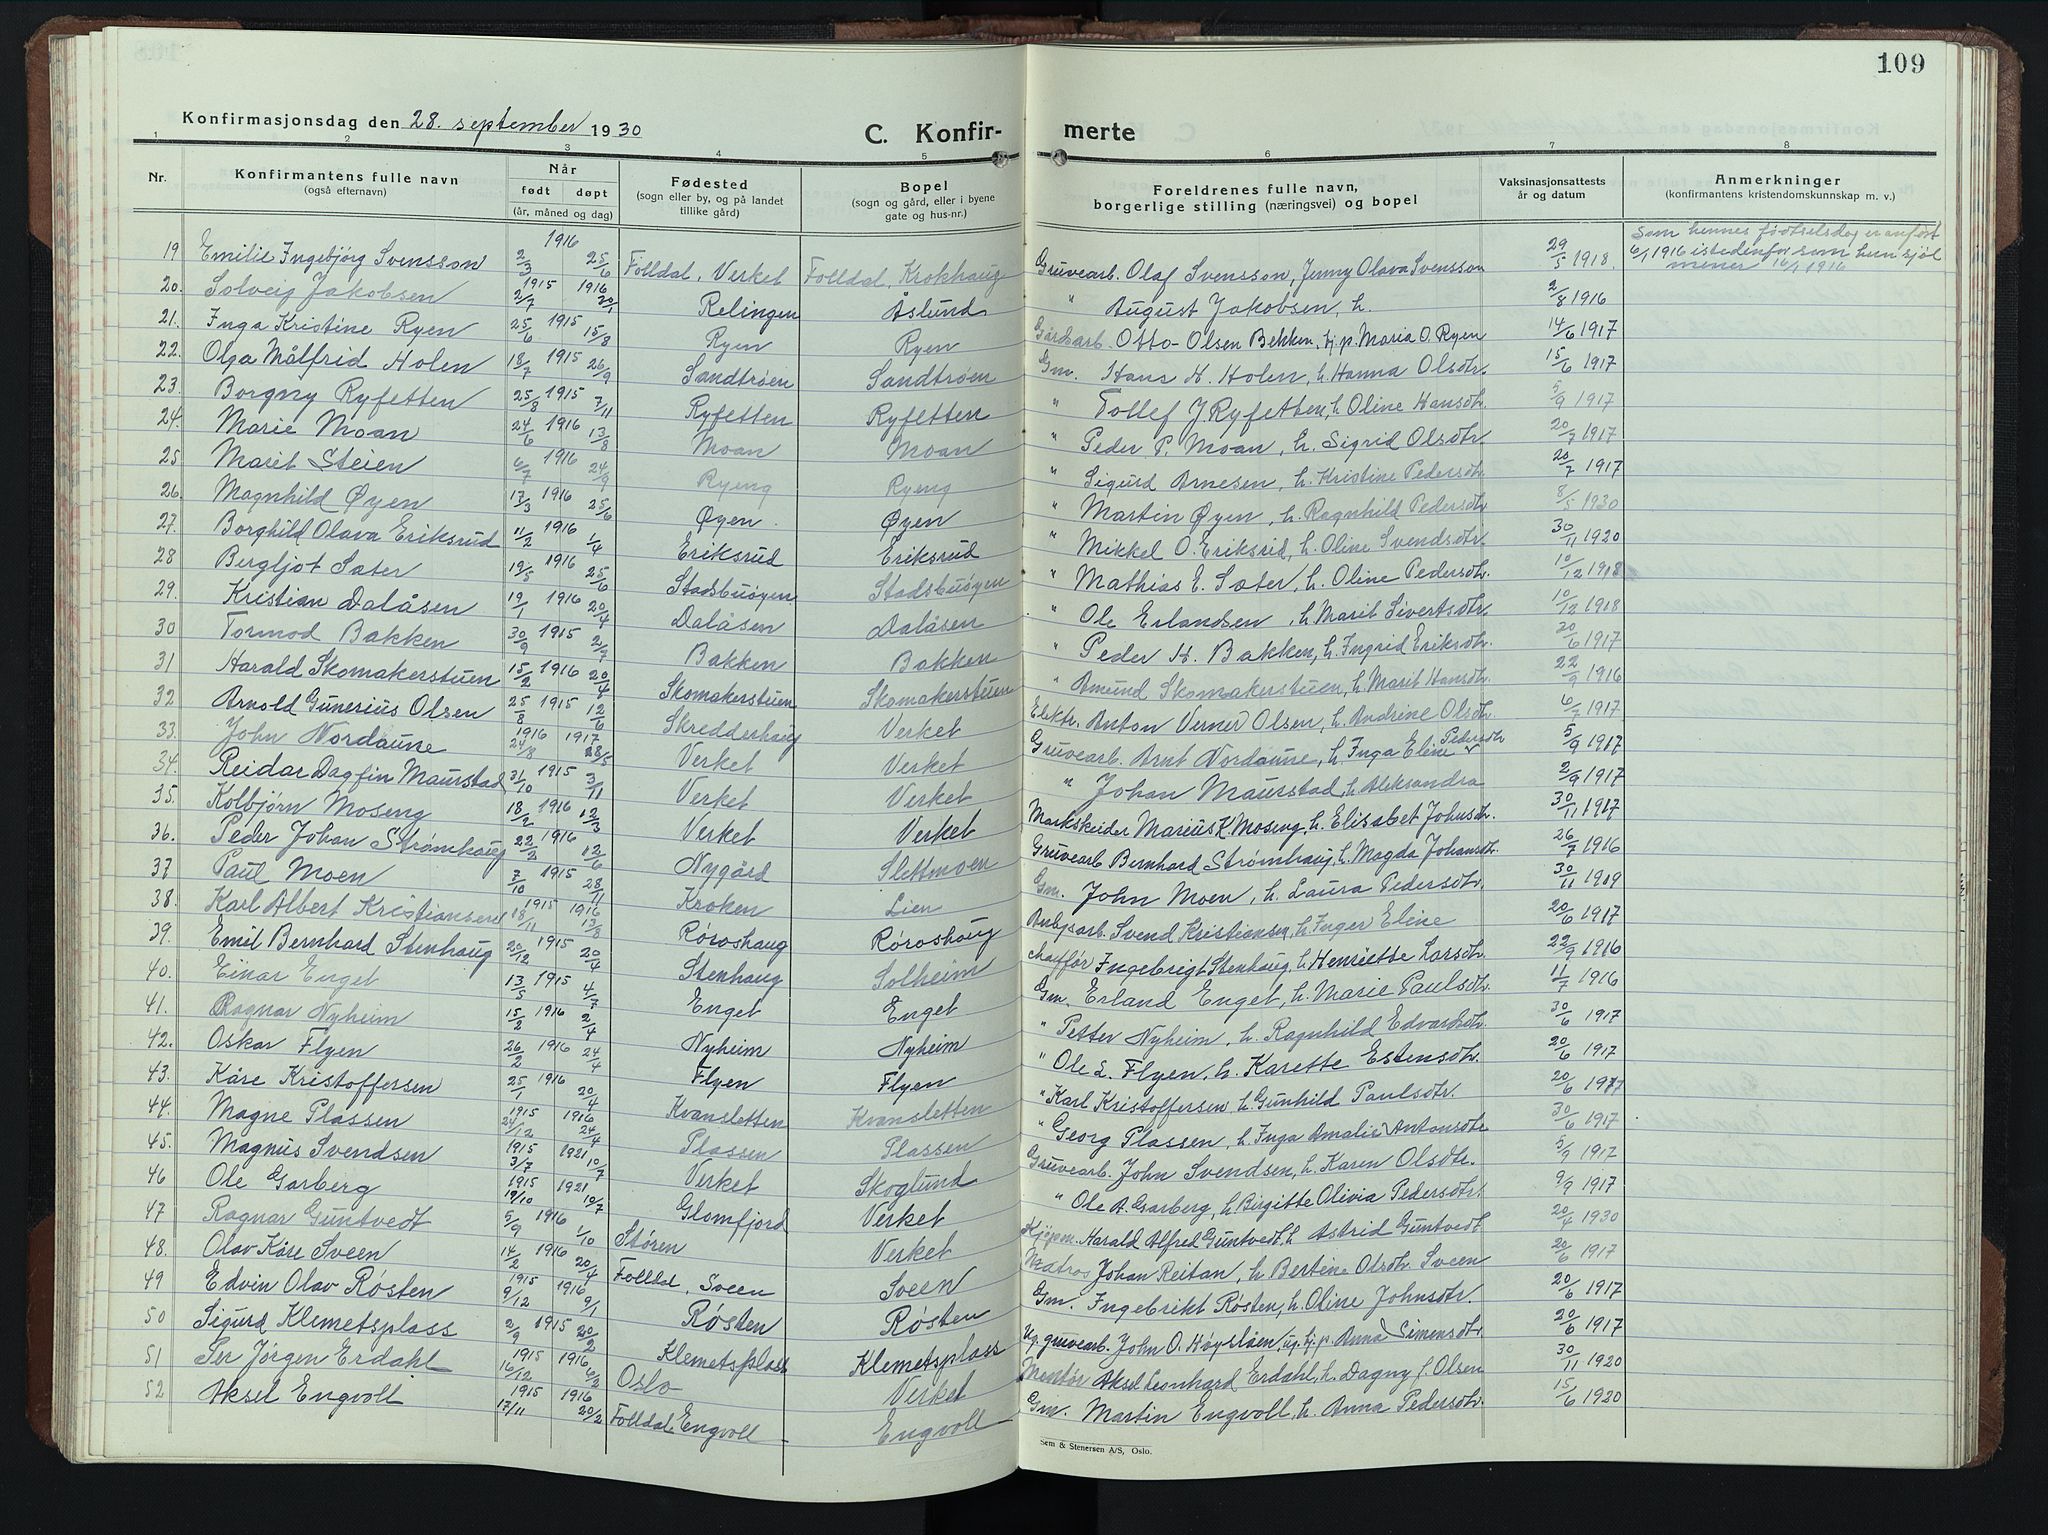 109
Konfirmasjonsdag den 28. september 1930
C. Konfir- merte
1 2 3 4 5 6 7 8
Nr. Konfirmantens fulle navn (også efternavn) Når født døpt (år, måned og dag) Fødested (sogn eller by, og på landet tillike gård) Bopel (sogn og gård, eller i byene gate og hus-nr.) Foreldrenes fulle navn, borgerlige stilling (næringsvei) og bopel Vaksinasjonsattests år og datum Anmerkninger (konfirmantens kristendomskunnskap m. v.)
19 Emilie Ingebjörg Svensson 2/3 1916 25/6 Folldal, Verket Folldal, Krokhaug Gruvearb. Olaf Svensson, Jenny Olava Svensson 29/5 1918. Som hennes fødtselsdag er anført 6/1 1916 istedenfor som hun sjøl mener 16/1 1916
20. Solveig Jakobsen 1915 2/7 1916 30/1 Relingen Åslund " August Jakobsen, h. 2/8 1916
21. Inga Kristine Ryen 25/6 1915 15/8 Ryen Ryen Gårdsarb. Otto Olsen Bekken, hj.p. Maria O. Ryen 14/6 1917
22. Olga Målfrid Holen 18/7 1915 26/9 Sandtrøen Sandtrøen Gm. Hans H. Holen, h. Hanna Olsdtr. 15/6 1917
23. Borgny Ryfetten 25/8 1915 7/11 Ryfetten Ryfetten " Tollef J. Ryfetten, h. Oline Hansdtr. 5/9 1917
24. Marie Moan 24/6 1916 13/8 Moan Moan " Peder P. Moan, h. Sigrid Olsdtr. 20/7 1917
25 Marit Steien 6/7 1916 24/9 Ryeng Ryeng " Sigurd Arnesen, h. Kristine Pedersdtr. 20/7 1917
26. Magnhild Øyen 17/3 1916 25/6 Øyen Øyen " Martin Øyen, h. Ragnhild Pedersdtr. 8/5 1930
27. Borghild Olava Eriksrud 11/2 1916 1/4 Eriksrud Eriksrud " Mikkel O. Eriksrud, h. Oline Svendsdtr. 30/11 1920
28 Bergljot Sæter 19/5 1916 25/6 Stadsbuøyen Stadsbuøyen " Mathias E. Sæter, h. Oline Pedersdtr. 10/12 1918
29. Kristian Dalåsen 19/1 1916 20/4 Dalåsen Dalåsen " Ole Erlandsen, h. Marit Sivertsdtr. 10/12 1918
30 Tormod Bakken 30/9 1915 2/7 Bakken Bakken " Peder H. Bakken, h. Ingrid Eriksdtr. 20/6 1917
31 Harald Skomakerstuen 15/2 1916 20/4 Skomakerstuen Skomakerstuen " Amund Skomakerstuen, h. Marit Hansdtr. 22/9 1916
32 Arnold Gunerius Olsen 25/8 1915 12/6 Skredderhaug Verket Elektr. Anton Verner Olsen, h. Andrine Olsdtr. 6/7 1917
33. John Nordaune 1916 24/8 1917 28/5 Verket Verket Gruvearb. Arnt Nordaune, h. Inga Eline Pedersdtr 5/9 1917
34. Reidar Dagfin Maurstad 31/10 1915 3/11 Verket Verket " Johan Maurstad, h. Aleksandra 2/9 1917
35. Kolbjørn Moseng 18/2 1916 12/3 Verket Verket Markskeider Marius K. Moseng, h. Elisabet Johnsdtr. 30/11 1917
36. Peder Johan Strømhaug 22/2 1916 12/6 Nygård Slettmoen Gruvearb. Bernhard Strømhaug, h. Magda Johansdtr. 26/7 1916
37 Paul Moen 7/10 1915 28/11 Kroken Lien Gm. John Moen, h. Laura Pedersdtr. 30/11 1919
38. Karl Albert Kristiansen 1915 18/11 1916 13/8 Røroshaug Røroshaug Anlegsarb. Svend Kristiansen, h. Inger Eline 20/6 1917
39. Emil Bernhard Stenhaug 20/12 1915 20/4 Stenhaug Solheim chaffør Ingebrigt Stenhaug, h. Henriette Larsdtr. 22/9 1916
40. Einar Enget 13/5 1915 4/7 Enget Enget Gm. Erland Enget, h. Marie Paulsdtr. 11/7 1916
41. Ragnar Nyheim 15/2 1916 2/4 Nyheim Nyheim " Petter Nyheim, h. Ragnhild Edvardsdtr. 30/6 1917
42. Oskar Flyen 26/2 1916 24/4 Flyen Flyen " Ole L. Flyen, h. Karette Estensdtr. 20/6 1917
43. Kåre Kristoffersen 25/1 1916 20/4 Kvansletten Kvansletten " Karl Kristoffersen h. Gunhild Paulsdtr. 20/6 1917
44. Magne Plassen 1915 24/12 1916 24/4 Plassen Plassen " Georg Plassen, h. Inga Amalie Antonsdtr 30/6 1917
45. Magnus Svendsen 1915 3/7 1921 10/7 Verket Skoglund Gruvearb. John Svendsen, h. Karen Olsdtr. 5/9 1917
46 Ole Garberg 1915 19/10 1921 10/7 Glomfjord Verket " Ole A. Garberg, h. Birgitte Olivia Pedersdtr. 9/9 1917
47 Ragnar Guntvedt 5/9 1916 1/10 Støren Verket Kjøpm. Harald Alfred Guntvedt, h. Astrid Guntvedt 20/4 1930
48. Olav Kåre Sveen 14/2 1916 20/4 Folldal, Sveen Sveen Matros Johan Reitan, h. Bertine Olsdtr. Sveen 20/6 1917
49 Edvin Olav Røsten 1915 9/12 1916 9/1 Røsten Røsten Gm. Ingebrikt Røsten, h. Oline Johnsdtr. 20/6 1917
50 Sigurd Klemetsplass 2/9 1915 20/2 Klemetsplass Klemetsplass Ug. gruvearb. John O. Høysløen, ug. hj.p. Anna Simensdtr 20/6 1917
51 Per Jørgen Erdahl 1915 16/12 1916 6/2 Oslo Verket Montør Aksel Leonhard Erdahl, h. Dagny f. Olsen 30/11 1920
52 Aksel Engvoll 1915 17/11 1916 20/2 Folldal, Engvoll Engvoll Gm. Martin Engvoll, h. Anna Pedersdtr. 15/6 1920
Sem & Stenersen A/S, Oslo.